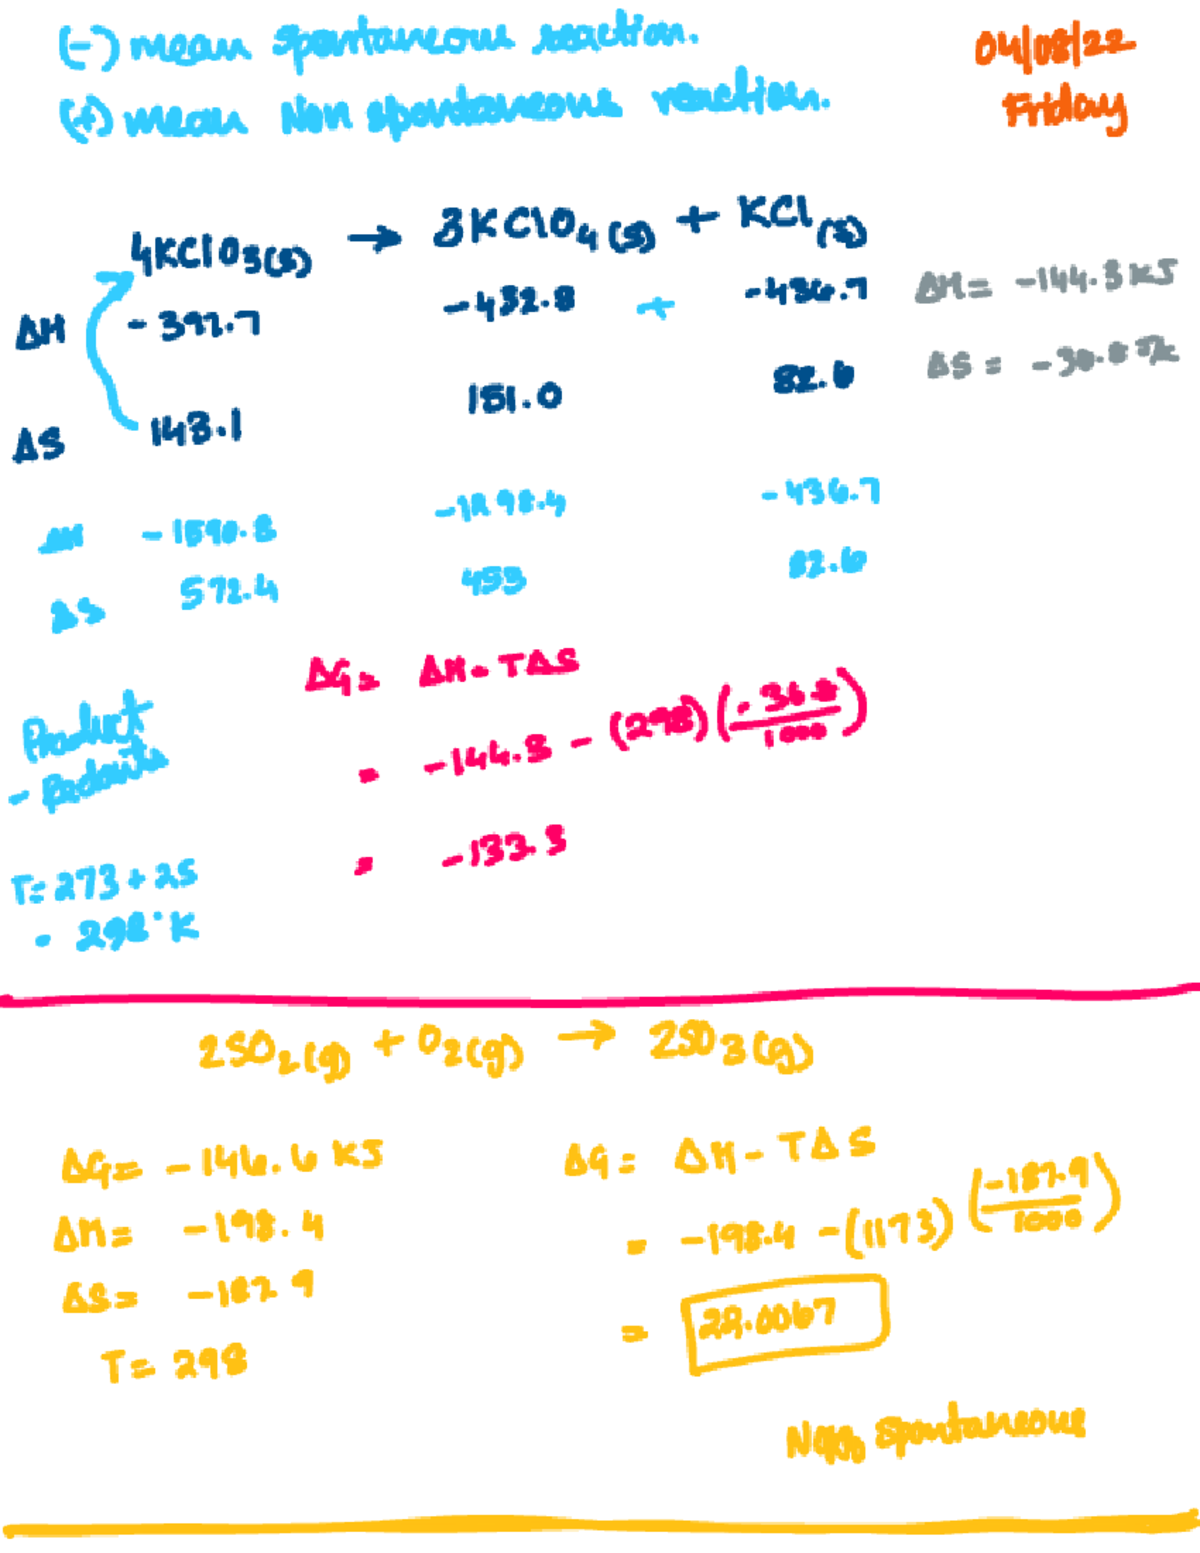 (-) mean spontaneous reaction.
04/08/22
(+) mean Non spontaneous reaction.
Friday
4KClO3(s) → 3KClO4(s) + KCl(s)
ΔH -397.7 -432.8 + -436.7 ΔH = -144.3 KJ
ΔS 143.1 151.0 82.6 ΔS = -36.8 J/k
ΔH -1590.8 -1298.4 -436.7
ΔS 572.4 453 82.6
ΔG = ΔH - TΔS
Product
- Redants
= -144.3 - (298)(-36.8/1000)
= -133.3
T= 273 + 25
= 298°K
2SO2(g) + O2(g) → 2SO3(g)
ΔG= -146.6 KJ
ΔH= -198.4
ΔS= -187.9
T= 298
ΔG = ΔH - TΔS
= -198.4 - (1173)(-187.9/1000)
= 22.0067
Non spontaneous